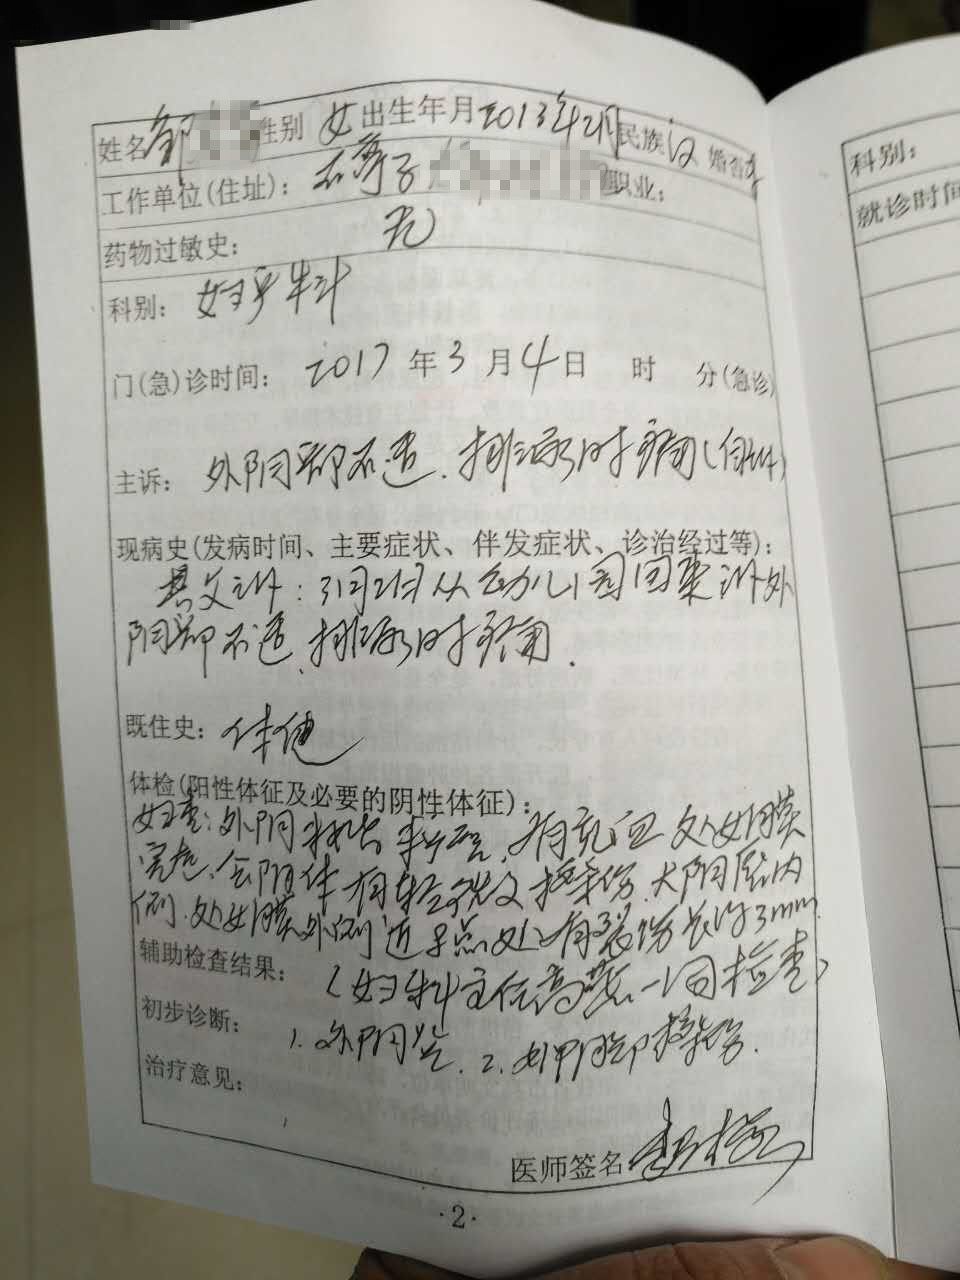 姓名 邹 性别 女 出生年月 2013年2月 民族 汉 婚否
工作单位(住址): 石 子 职业:
药物过敏史: 无
科别: 妇产科
门(急)诊时间: 2017 年 3 月 4 日 时 分(急诊)
主诉: 外阴部不适、排尿时疼痛(
现病史(发病时间、主要症状、伴发症状、诊治经过等):
其父诉: 从幼儿园回来诉外
阴部不适、排尿时疼痛.
既住史: 体健
体检(阳性体征及必要的阴性体征):
妇查: 外阴 有充血 处女膜
完整. 会阴体有轻 擦伤. 大阴唇内
侧. 处女膜外侧近 点处有裂伤长约3mm.
辅助检查结果: (妇科主任高 一同检查)
初步诊断: 1. 外阴炎. 2. 外阴部擦伤.
治疗意见:
医师签名
·2·
科别:
就诊时间